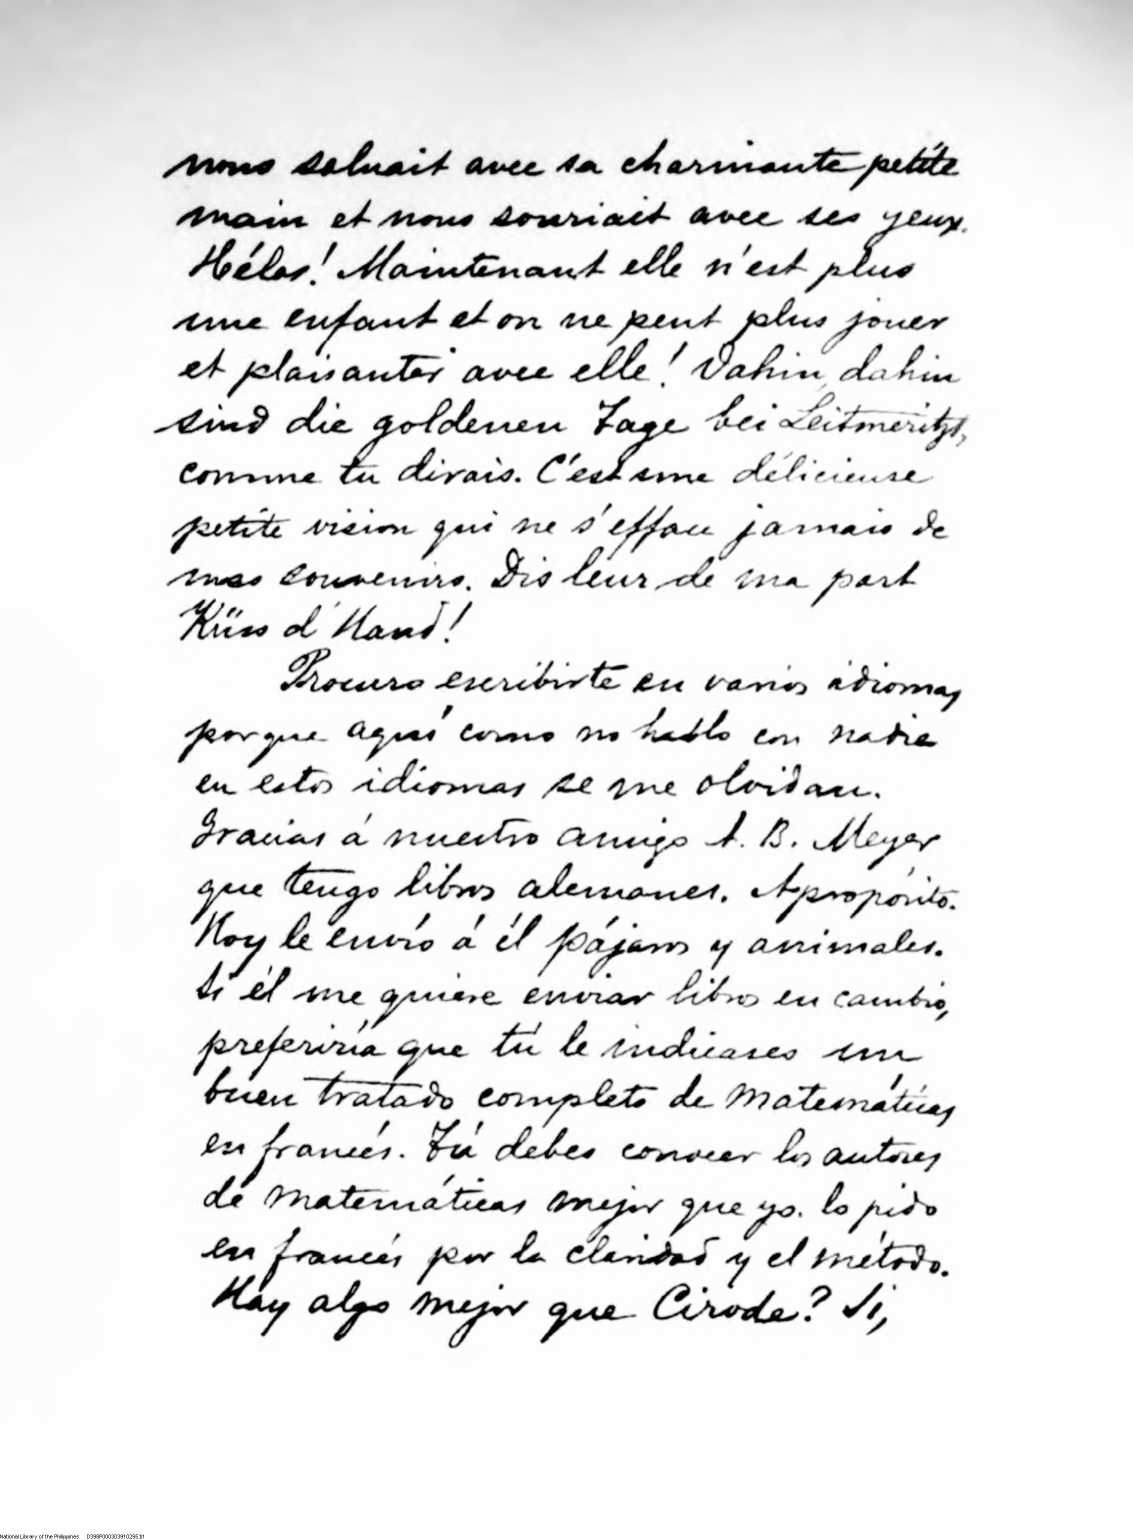 nous saluait avec sa charmante petite
main et nous souriait avec ses yeux.
Hélas! Maintenant elle n'est plus
une enfant et on ne peut plus jouer
et plaisanter avec elle! Dahin, dahin
sind die goldenen Tage bei Leitmeritz,
comme tu dirais. C'est une délicieuse
petite vision qui ne s'efface jamais de
mes souvenirs. Dis leur de ma part
Küss d' Hand!
Procuro escribirte en varios idiomas
porque aquí como no hablo con nadie
en estos idiomas se me olvidan.
Gracias á nuestro amigo A. B. Meyer
que tengo libros alemanes. Apropósito.
Hoy le envío á él pájaros y animales.
Si él me quiere enviar libros en cambio,
preferiría que tú le indicases un
buen tratado completo de Matemáticas
en francés. Tú debes conocer los autores
de Matemáticas mejor que yo. lo pido
en francés por la claridad y el método.
Hay algo mejor que Cirode? Si,
National Library of the Philippines